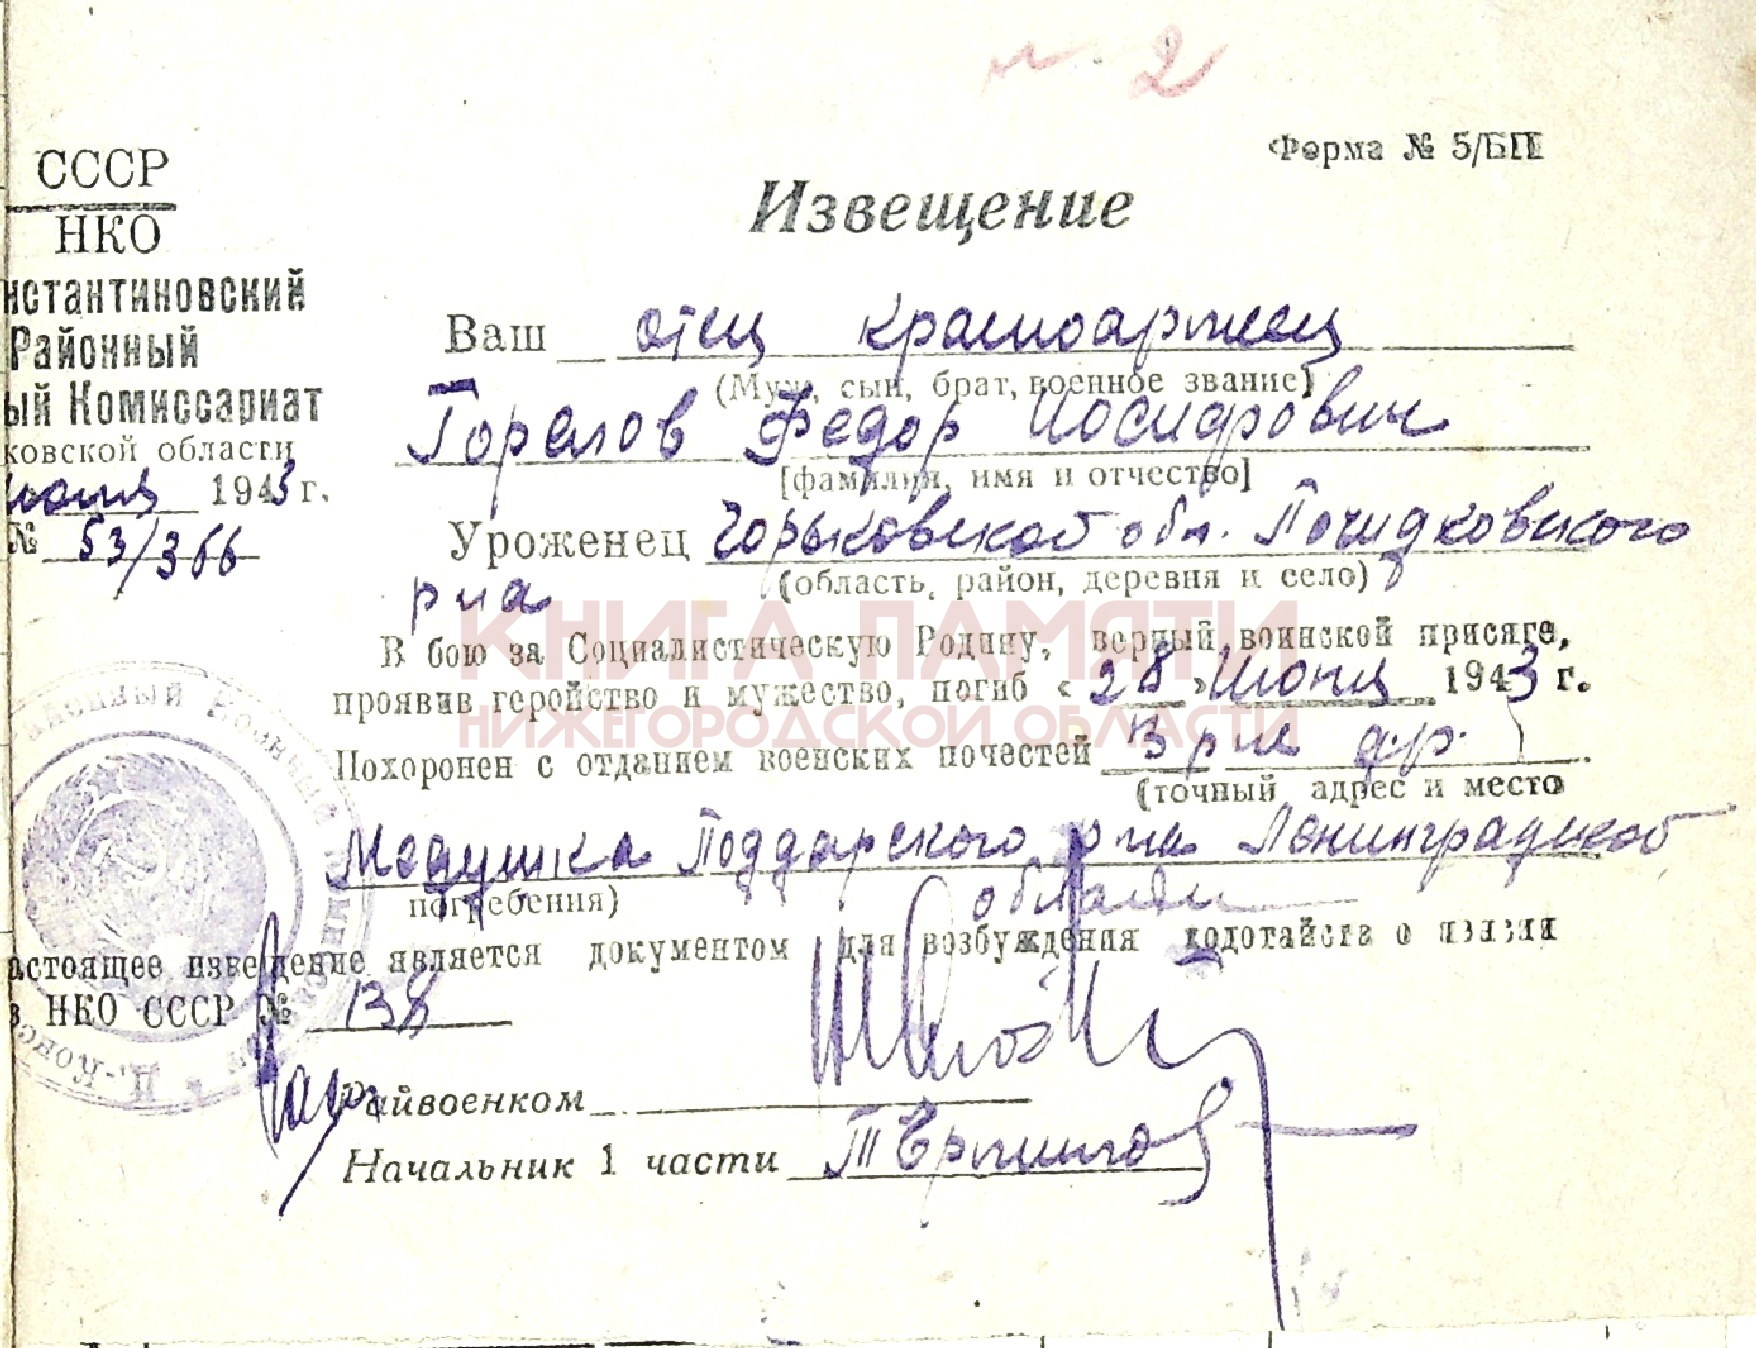 п. 2
Форма № 5/БП
СССР
НКО
нстантиновский
Районный
ый Комиссариат
ковской области
июня 1943 г.
№ 53/366
Извещение
Ваш отец красноармеец
(Муж, сын, брат, военное звание)
Горелов Федор Иосифович
[фамилия, имя и отчество]
Уроженец Горьковской обл. Почидковского
(область, район, деревня и село)
р на
КНИГА ПАМЯТИ
НИЖЕГОРОДСКОЙ ОБЛАСТИ
В бою за Социалистическую Родину, верный воинской присяге,
проявив геройство и мужество, погиб «28» Июня 1943 г.
Похоронен с отданием военских почестей В р не д.р.
(точный адрес и место
Медушка Поддорского р на Ленинградской
погребения)
области
астоящее извещение является документом для возбуждения ходотайста о пензии
в НКО СССР № 138
Райвоенком
Начальник 1 части